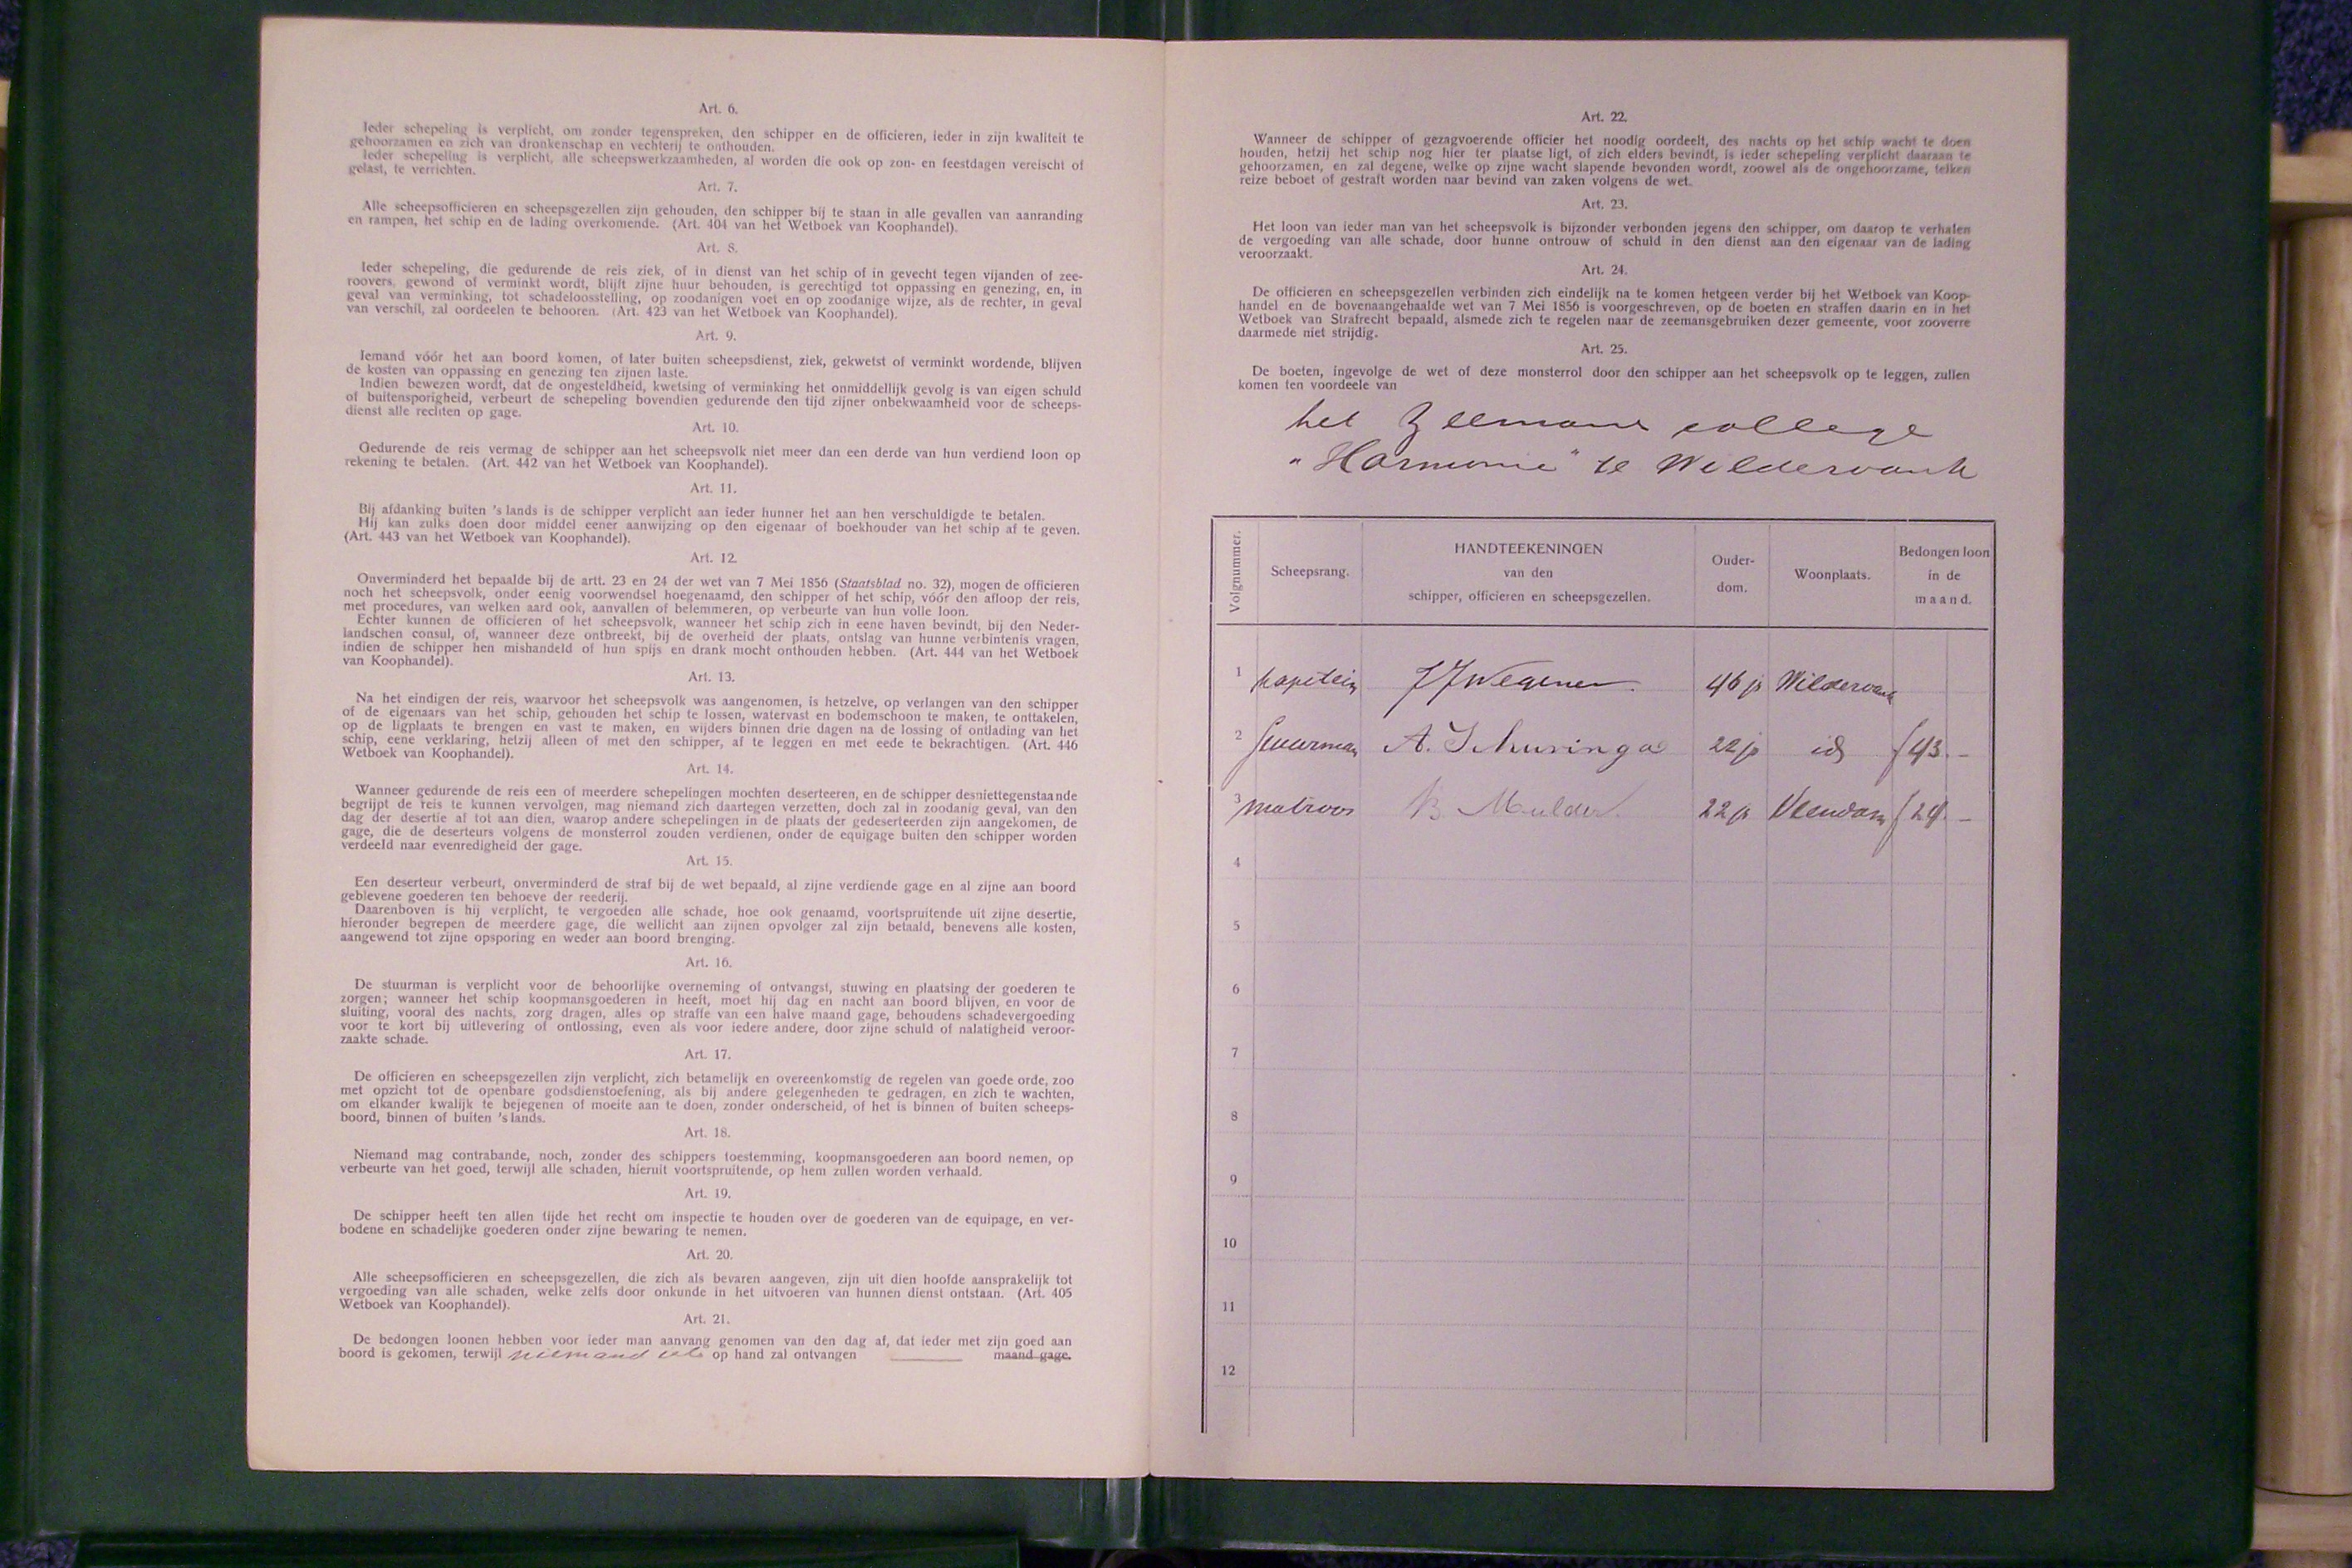 Art. 6.
Ieder schepeling is verplicht, om zonder tegenspreken, den schipper en de officieren, ieder in zijn kwaliteit te
gehoorzamen en zich van dronkenschap en vechterij te onthouden.
Ieder schepeling is verplicht, alle scheepswerkzaamheden, al worden die ook op zon- en feestdagen vereischt of
gelast, te verrichten.
Art. 7.
Alle scheepsofficieren en scheepsgezellen zijn gehouden, den schipper bij te staan in alle gevallen van aanranding
en rampen, het schip en de lading overkomende. (Art. 404 van het Wetboek van Koophandel).
Art. 8.
Ieder schepeling, die gedurende de reis ziek, of in dienst van het schip of in gevecht tegen vijanden of zee-
roovers, gewond of verminkt wordt, blijft zijne huur behouden, is gerechtigd tot oppassing en genezing, en, in
geval van verminking, tot schadeloosstelling, op zoodanigen voet en op zoodanige wijze, als de rechter, in geval
van verschil, zal oordeelen te behooren. (Art. 423 van het Wetboek van Koophandel).
Art. 9.
Iemand vóór het aan boord komen, of later buiten scheepsdienst, ziek, gekwetst of verminkt wordende, blijven
de kosten van oppassing en genezing ten zijnen laste.
Indien bewezen wordt, dat de ongesteldheid, kwetsing of verminking het onmiddellijk gevolg is van eigen schuld
of buitensporigheid, verbeurt de schepeling bovendien gedurende den tijd zijner onbekwaamheid voor de scheeps-
dienst alle rechten op gage.
Art. 10.
Gedurende de reis vermag de schipper aan het scheepsvolk niet meer dan een derde van hun verdiend loon op
rekening te betalen. (Art. 442 van het Wetboek van Koophandel).
Art. 11.
Bij afdanking buiten 's lands is de schipper verplicht aan ieder hunner het aan hen verschuldigde te betalen.
Hij kan zulks doen door middel eener aanwijzing op den eigenaar of boekhouder van het schip af te geven.
(Art. 443 van het Wetboek van Koophandel).
Art. 12.
Onverminderd het bepaalde bij de artt. 23 en 24 der wet van 7 Mei 1856 (Staatsblad no. 32), mogen de officieren
noch het scheepsvolk, onder eenig voorwendsel hoegenaamd, den schipper of het schip, vóór den afloop der reis,
met procedures, van welken aard ook, aanvallen of belemmeren, op verbeurte van hun volle loon.
Echter kunnen de officieren of het scheepsvolk, wanneer het schip zich in eene haven bevindt, bij den Neder-
landschen consul, of, wanneer deze ontbreekt, bij de overheid der plaats, ontslag van hunne verbintenis vragen,
indien de schipper hen mishandeld of hun spijs en drank mocht onthouden hebben. (Art. 444 van het Wetboek
van Koophandel).
Art. 13.
Na het eindigen der reis, waarvoor het scheepsvolk was aangenomen, is hetzelve, op verlangen van den schipper
of de eigenaars van het schip, gehouden het schip te lossen, watervast en bodemschoon te maken, te onttakelen,
op de ligplaats te brengen en vast te maken, en wijders binnen drie dagen na de lossing of ontlading van het
schip, eene verklaring, hetzij alleen of met den schipper, af te leggen en met eede te bekrachtigen. (Art. 446
Wetboek van Koophandel).
Art. 14.
Wanneer gedurende de reis een of meerdere schepelingen mochten deserteeren, en de schipper desniettegenstaande
begrijpt de reis te kunnen vervolgen, mag niemand zich daartegen verzetten, doch zal in zoodanig geval, van den
dag der desertie af tot aan dien, waarop andere schepelingen in de plaats der gedeserteerden zijn aangekomen, de
gage, die de deserteurs volgens de monsterrol zouden verdienen, onder de equigage buiten den schipper worden
verdeeld naar evenredigheid der gage.
Art. 15.
Een deserteur verbeurt, onverminderd de straf bij de wet bepaald, al zijne verdiende gage en al zijne aan boord
geblevene goederen ten behoeve der reederij.
Daarenboven is hij verplicht, te vergoeden alle schade, hoe ook genaamd, voortspruitende uit zijne desertie,
hieronder begrepen de meerdere gage, die wellicht aan zijnen opvolger zal zijn betaald, benevens alle kosten,
aangewend tot zijne opsporing en weder aan boord brenging.
Art. 16.
De stuurman is verplicht voor de behoorlijke overneming of ontvangst, stuwing en plaatsing der goederen te
zorgen; wanneer het schip koopmansgoederen in heeft, moet hij dag en nacht aan boord blijven, en voor de
sluiting, vooral des nachts, zorg dragen, alles op straffe van een halve maand gage, behoudens schadevergoeding
voor te kort bij uitlevering of ontlossing, even als voor iedere andere, door zijne schuld of nalatigheid veroor-
zaakte schade.
Art. 17.
De officieren en scheepsgezellen zijn verplicht, zich betamelijk en overeenkomstig de regelen van goede orde, zoo
met opzicht tot de openbare godsdienstoefening, als bij andere gelegenheden te gedragen, en zich te wachten,
om elkander kwalijk te bejegenen of moeite aan te doen, zonder onderscheid, of het is binnen of buiten scheeps-
boord, binnen of buiten 's lands.
Art. 18.
Niemand mag contrabande, noch, zonder des schippers toestemming, koopmansgoederen aan boord nemen, op
verbeurte van het goed, terwijl alle schaden, hieruit voortspruitende, op hem zullen worden verhaald.
Art. 19.
De schipper heeft ten allen tijde het recht om inspectie te houden over de goederen van de equipage, en ver-
bodene en schadelijke goederen onder zijne bewaring te nemen.
Art. 20.
Alle scheepsofficieren en scheepsgezellen, die zich als bevaren aangeven, zijn uit dien hoofde aansprakelijk tot
vergoeding van alle schaden, welke zelfs door onkunde in het uitvoeren van hunnen dienst ontstaan. (Art. 405
Wetboek van Koophandel).
Art. 21.
De bedongen loonen hebben voor ieder man aanvang genomen van den dag af, dat ieder met zijn goed aan
boord is gekomen, terwijl niemand iets op hand zal ontvangen maand gage.
Art. 22.
Wanneer de schipper of gezagvoerende officier het noodig oordeelt, des nachts op het schip wacht te doen
houden, hetzij het schip nog hier ter plaatse ligt, of zich elders bevindt, is ieder schepeling verplicht daaraan te
gehoorzamen, en zal degene, welke op zijne wacht slapende bevonden wordt, zoowel als de ongehoorzame, telken
reize beboet of gestraft worden naar bevind van zaken volgens de wet.
Art. 23.
Het loon van ieder man van het scheepsvolk is bijzonder verbonden jegens den schipper, om daarop te verhalen
de vergoeding van alle schade, door hunne ontrouw of schuld in den dienst aan den eigenaar van de lading
veroorzaakt.
Art. 24.
De officieren en scheepsgezellen verbinden zich eindelijk na te komen hetgeen verder bij het Wetboek van Koop-
handel en de bovenaangehaalde wet van 7 Mei 1856 is voorgeschreven, op de boeten en straffen daarin en in het
Wetboek van Strafrecht bepaald, alsmede zich te regelen naar de zeemansgebruiken dezer gemeente, voor zooverre
daarmede niet strijdig.
Art. 25.
De boeten, ingevolge de wet of deze monsterrol door den schipper aan het scheepsvolk op te leggen, zullen
komen ten voordeele van
het Zeemans college
"Harmonie" te Wildervank
Volgnummer. Scheepsrang. HANDTEEKENINGEN van den schipper, officieren en scheepsgezellen. Ouder-dom. Woonplaats. Bedongen loon in de maand.
1 kapitein JJ Wegener 46 jr Wildervank
2 stuurman A. Schuringa 22 jr id f 43.–
3 matroos B Mulder. 22 jr Veendam f 24.–
4
5
6
7
8
9
10
11
12